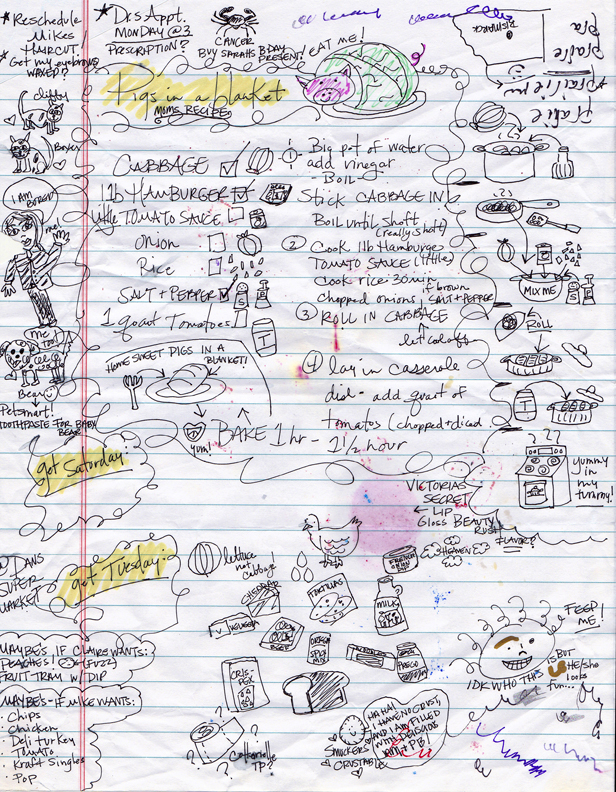 *Reschedule
Mikes!
HAIRCUT.
* Get my eyebrows
WAXED?
* Drs Appt.
MONDAY @ 3
PRESCRIPTION?
CANCER
BUY SARAHS B-DAY
PRESENT!
EAT ME!
BISMARCK
Pigs in a blanket
MOMS RECIPE
CABBAGE
1lb HAMBURGER
little TOMATO SAUCE
Onion
Rice
SALT + PEPPER
1 quart Tomatoes
1 Big pot of water
add vinegar
- BOIL -
Stick CABBAGE IN
BOIL until shoft
(really shoft)
2 Cook 1lb Hamburger
TOMATO SAUCE (little)
Cook rice 30 min
if brown
chopped onions, SALT + PEPPER
3 ROLL IN CABBAGE
let cool off
4 lay in casserole
dish - add quart of
tomatos (chopped + diced
BAKE 1 hr - 1 1/2 hour
HOME SWEET PIGS IN A
BLANKET!
yum!
MIX ME
ROLL
T
T
yummy
in
my
tummy!
I AM
BORED!
me!
me
TOO!
Bear
Petsmart!
TOOTHPASTE FOR BABY
BEAR
got Saturday:
VICTORIAS
SECRET
← LIP
Gloss BEAUTY
RUSH
FLAVOR?
got Tuesday:
DANS
SUPER
MARKET
lettuce
not
cabbage!
CHEDDAR
TORTILLAS
FRENCH
ONION
DIP
HEAVEN
MILK
VELVEETA
CORN
BEEF
CRISPEX
PREGO
MAYBE'S IF CLAIRE WANTS:
PEACHES! (FUZZ)
FRUIT TRAY W/ DIP
MAYBE'S - IF MIKE WANTS:
· Chips
· Chicken
· Deli turkey
· Tomato
· Kraft Singles
· Pop
TP?
SMUCKERS
CRUSTABLE
HA HA!
I HAVE NO CRUST,
AND I AM FILLED
WITH DELICIOUS
PB!
FEED!
ME.
IDK WHO THIS IS BUT
He/she
looks
fun...